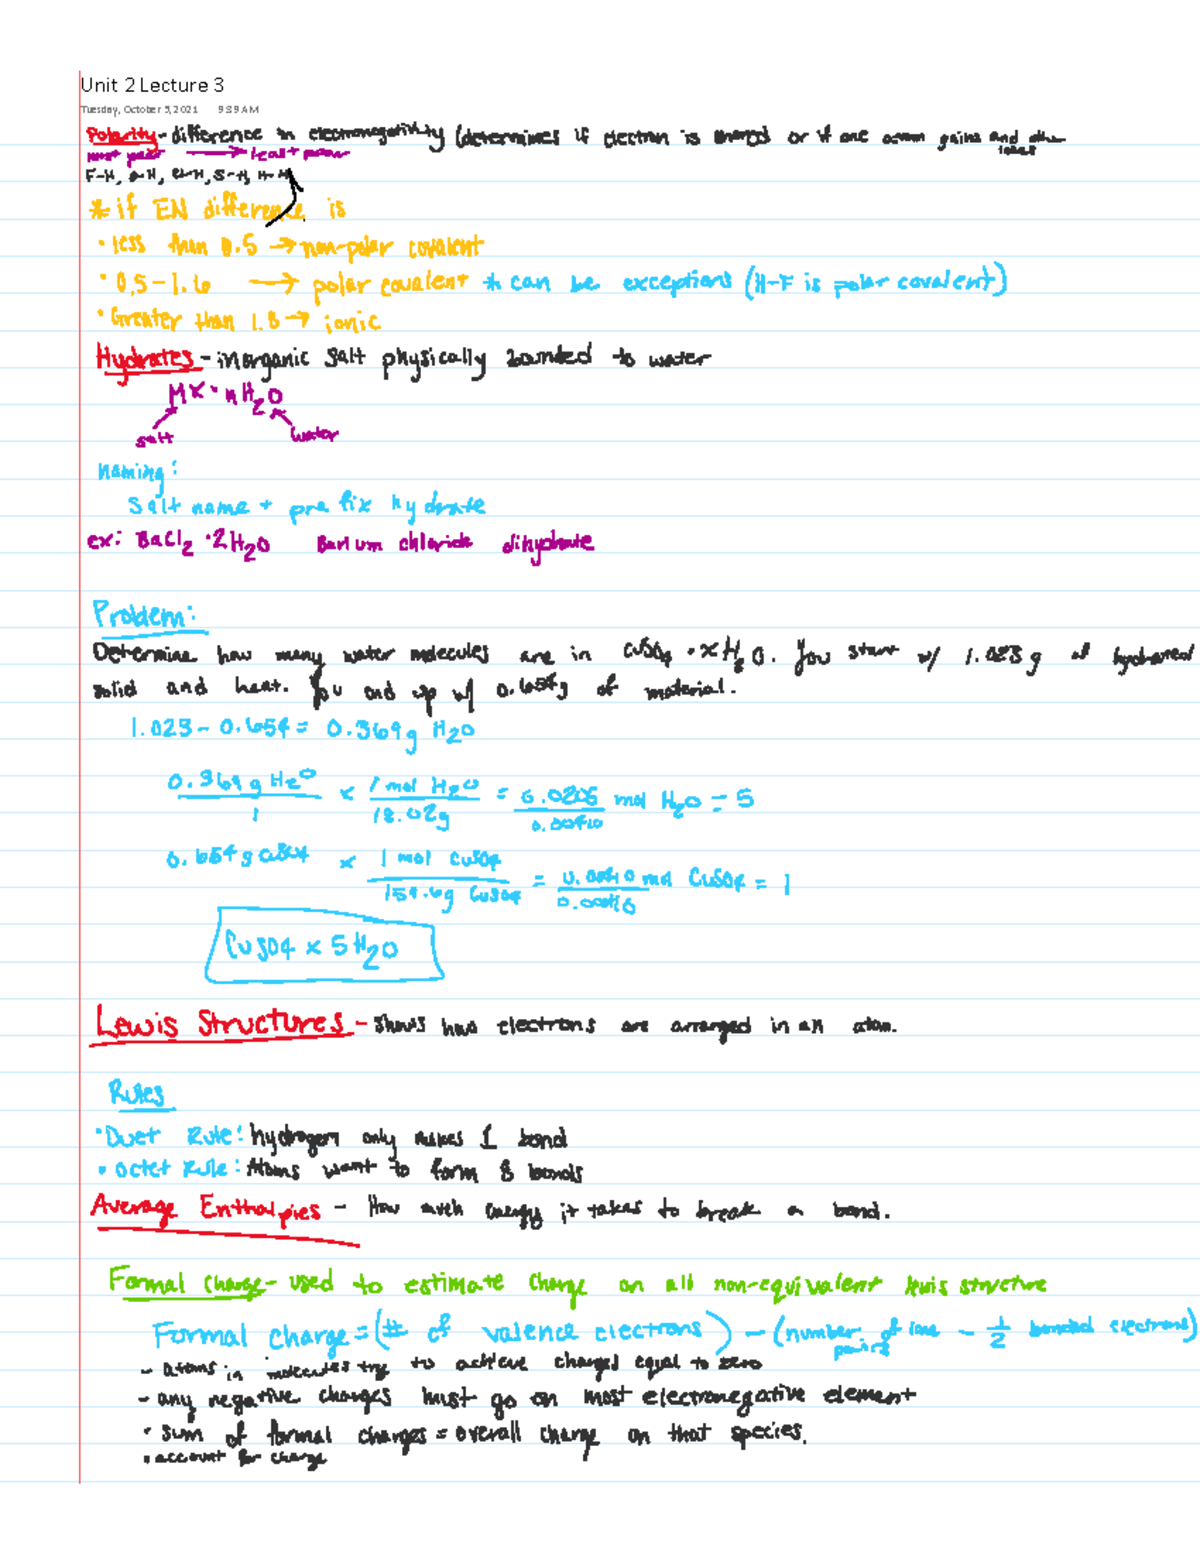 Unit 2 Lecture 3
Tuesday, October 5, 2021 9:39 AM
Polarity - difference in electronegativity (determines if electron is shared or if one atom gains and other loses
most polar → least polar
F-H, O-H, Cl-H, S-H, H-H
* if EN difference is
• less than 0.5 → non-polar covalent
• 0.5-1.6 → polar covalent * can be exceptions (H-F is polar covalent)
• Greater than 1.8 → ionic
Hydrates - inorganic salt physically bounded to water
MX • nH2O
salt water
naming:
salt name + prefix hydrate
ex: BaCl2 • 2H2O Barium chloride dihydrate
Problem:
Determine how many water molecules are in CuSO4 • xH2O. You start w/ 1.023 g of hydrated
solid and heat. You end up w/ 0.654g of material.
1.023 - 0.654 = 0.369g H2O
0.369 g H2O × 1 mol H2O = 0.0205 mol H2O = 5
1 18.02g 0.00410
0.654 g CuSO4 × 1 mol CuSO4
159.6g CuSO4 = 0.00410 mol CuSO4 = 1
0.00410
CuSO4 × 5H2O
Lewis Structures - shows how electrons are arranged in an atom.
Rules
• Duet Rule: hydrogen only makes 1 bond
• octet Rule: Atoms want to form 8 bonds
Average Enthalpies - How much energy it takes to break a bond.
Formal charge - used to estimate charge on all non-equivalent lewis structure
Formal charge = (# of valence electrons) - (number of lone pairs - 1/2 bonded electrons)
- atoms in molecules try to achieve charges equal to zero
- any negative charges must go on most electronegative element
• sum of formal charges = overall charge on that species.
• account for charge